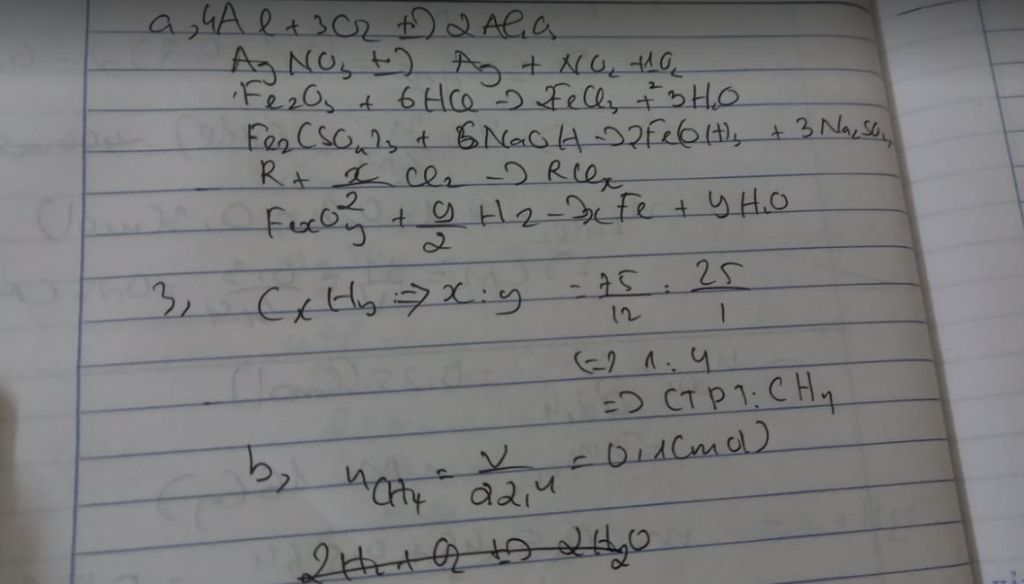 a, 4Al + 3O2 t→ 2Al2O3
AgNO3 t→ Ag + NO2 + 1/2O2
Fe2O3 + 6HCl → 2FeCl3 + 3H2O
Fe2(SO4)3 + 6NaOH → 2Fe(OH)3 + 3Na2SO4
R + x/2 Cl2 → RClx
FexOy + y/2 H2 → xFe + yH2O
3, CxHy => x:y = 75/12 : 25/1
<=> 1:4
=> CTPT: CH4
b, nCH4 = V/22,4 = 0,1(mol)
2H2 + O2 t→ 2H2O